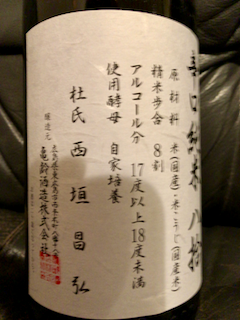 辛口純米 八拾
原材料 米(国産)・米こうじ(国産米)
精米歩合 8割
アルコール分 17度以上18度未満
使用酵母 自家培養
杜氏 西垣昌弘
醸造元
亀齢酒造株式会社